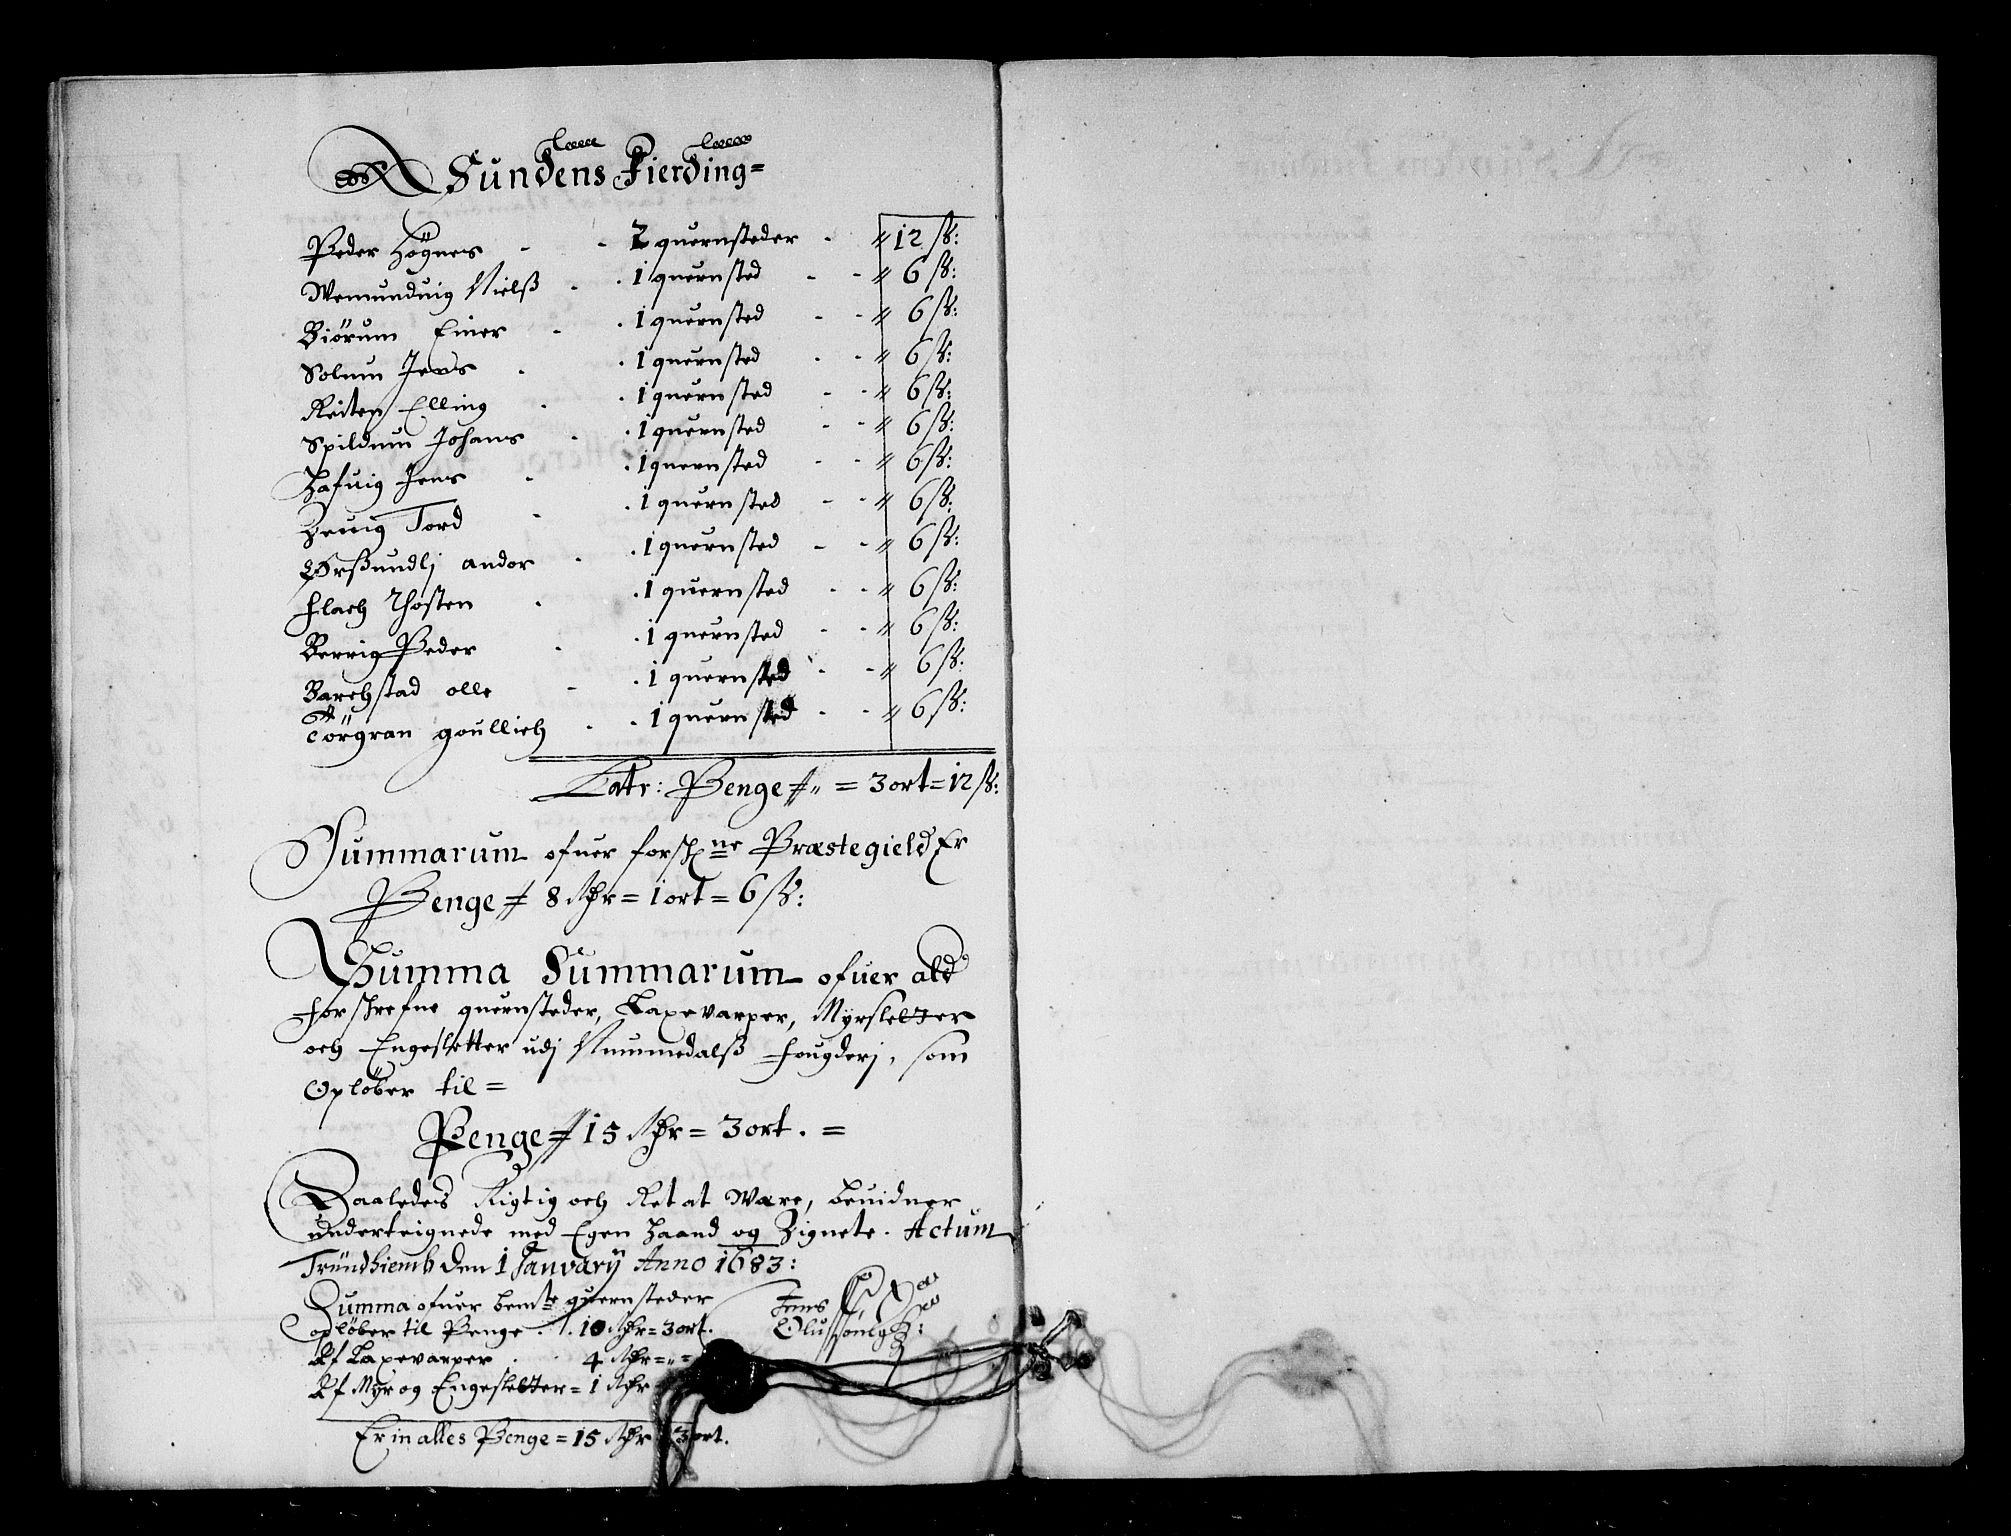 Sundens Fierding=
Peder Högnes - - 2 quernsteder - // 12 ß:
Wemunduig Nielß - . 1 quernsted - - // 6 ß:
Biörum Einer - . 1 quernsted - - // 6 ß:
Solum Jens . . 1 quernsted - - // 6 ß:
Reiten Elling . . 1 quernsted - - // 6 ß:
Spildum Johans - . 1 quernsted - - // 6 ß:
Hafuig Jens - . 1 quernsted - - // 6 ß:
Zeuig Tord - . 1 quernsted - - // 6 ß:
Ørßundlj andor - . 1 quernsted - - // 6 ß:
Flach Thosten . . 1 quernsted - - // 6 ß:
Berrig Peder - . 1 quernsted - - // 6 ß:
Barchstad olle - . 1 quernsted - - // 6 ß:
Törgran goullich - . 1 quernsted - - // 6 ß:
Latr: Penge // „ = 3 ort = 12 ß:
Summarum ofuer forschne Præstegield Er
Penge // 8 Rdr = 1 ort = 6 ß:
Summa Summarum ofuer ald
forschrefne quernsteder, Laxevarper, Myrsletter
och Engesletter udj Nummedalß fougderj, som
Opløber til =
Penge // 15 Rdr = 3 ort. =
Saaledes Rigtig och Ret at Være, beuidner
underteignede med Egen Haand og Zignete. Actum
Tründhiemb den 1 January Anno 1683:
Summa ofuer bemte quernsteder
opløber til Penge . . 10 Rdr = 3 ort.
Af Laxevarper . . 4 Rdr = „ =
Af Myr og Engesletter = 1 Rdr
Er in alles Penge = 15 Rdr 3 ort.
Jens
Olussøn